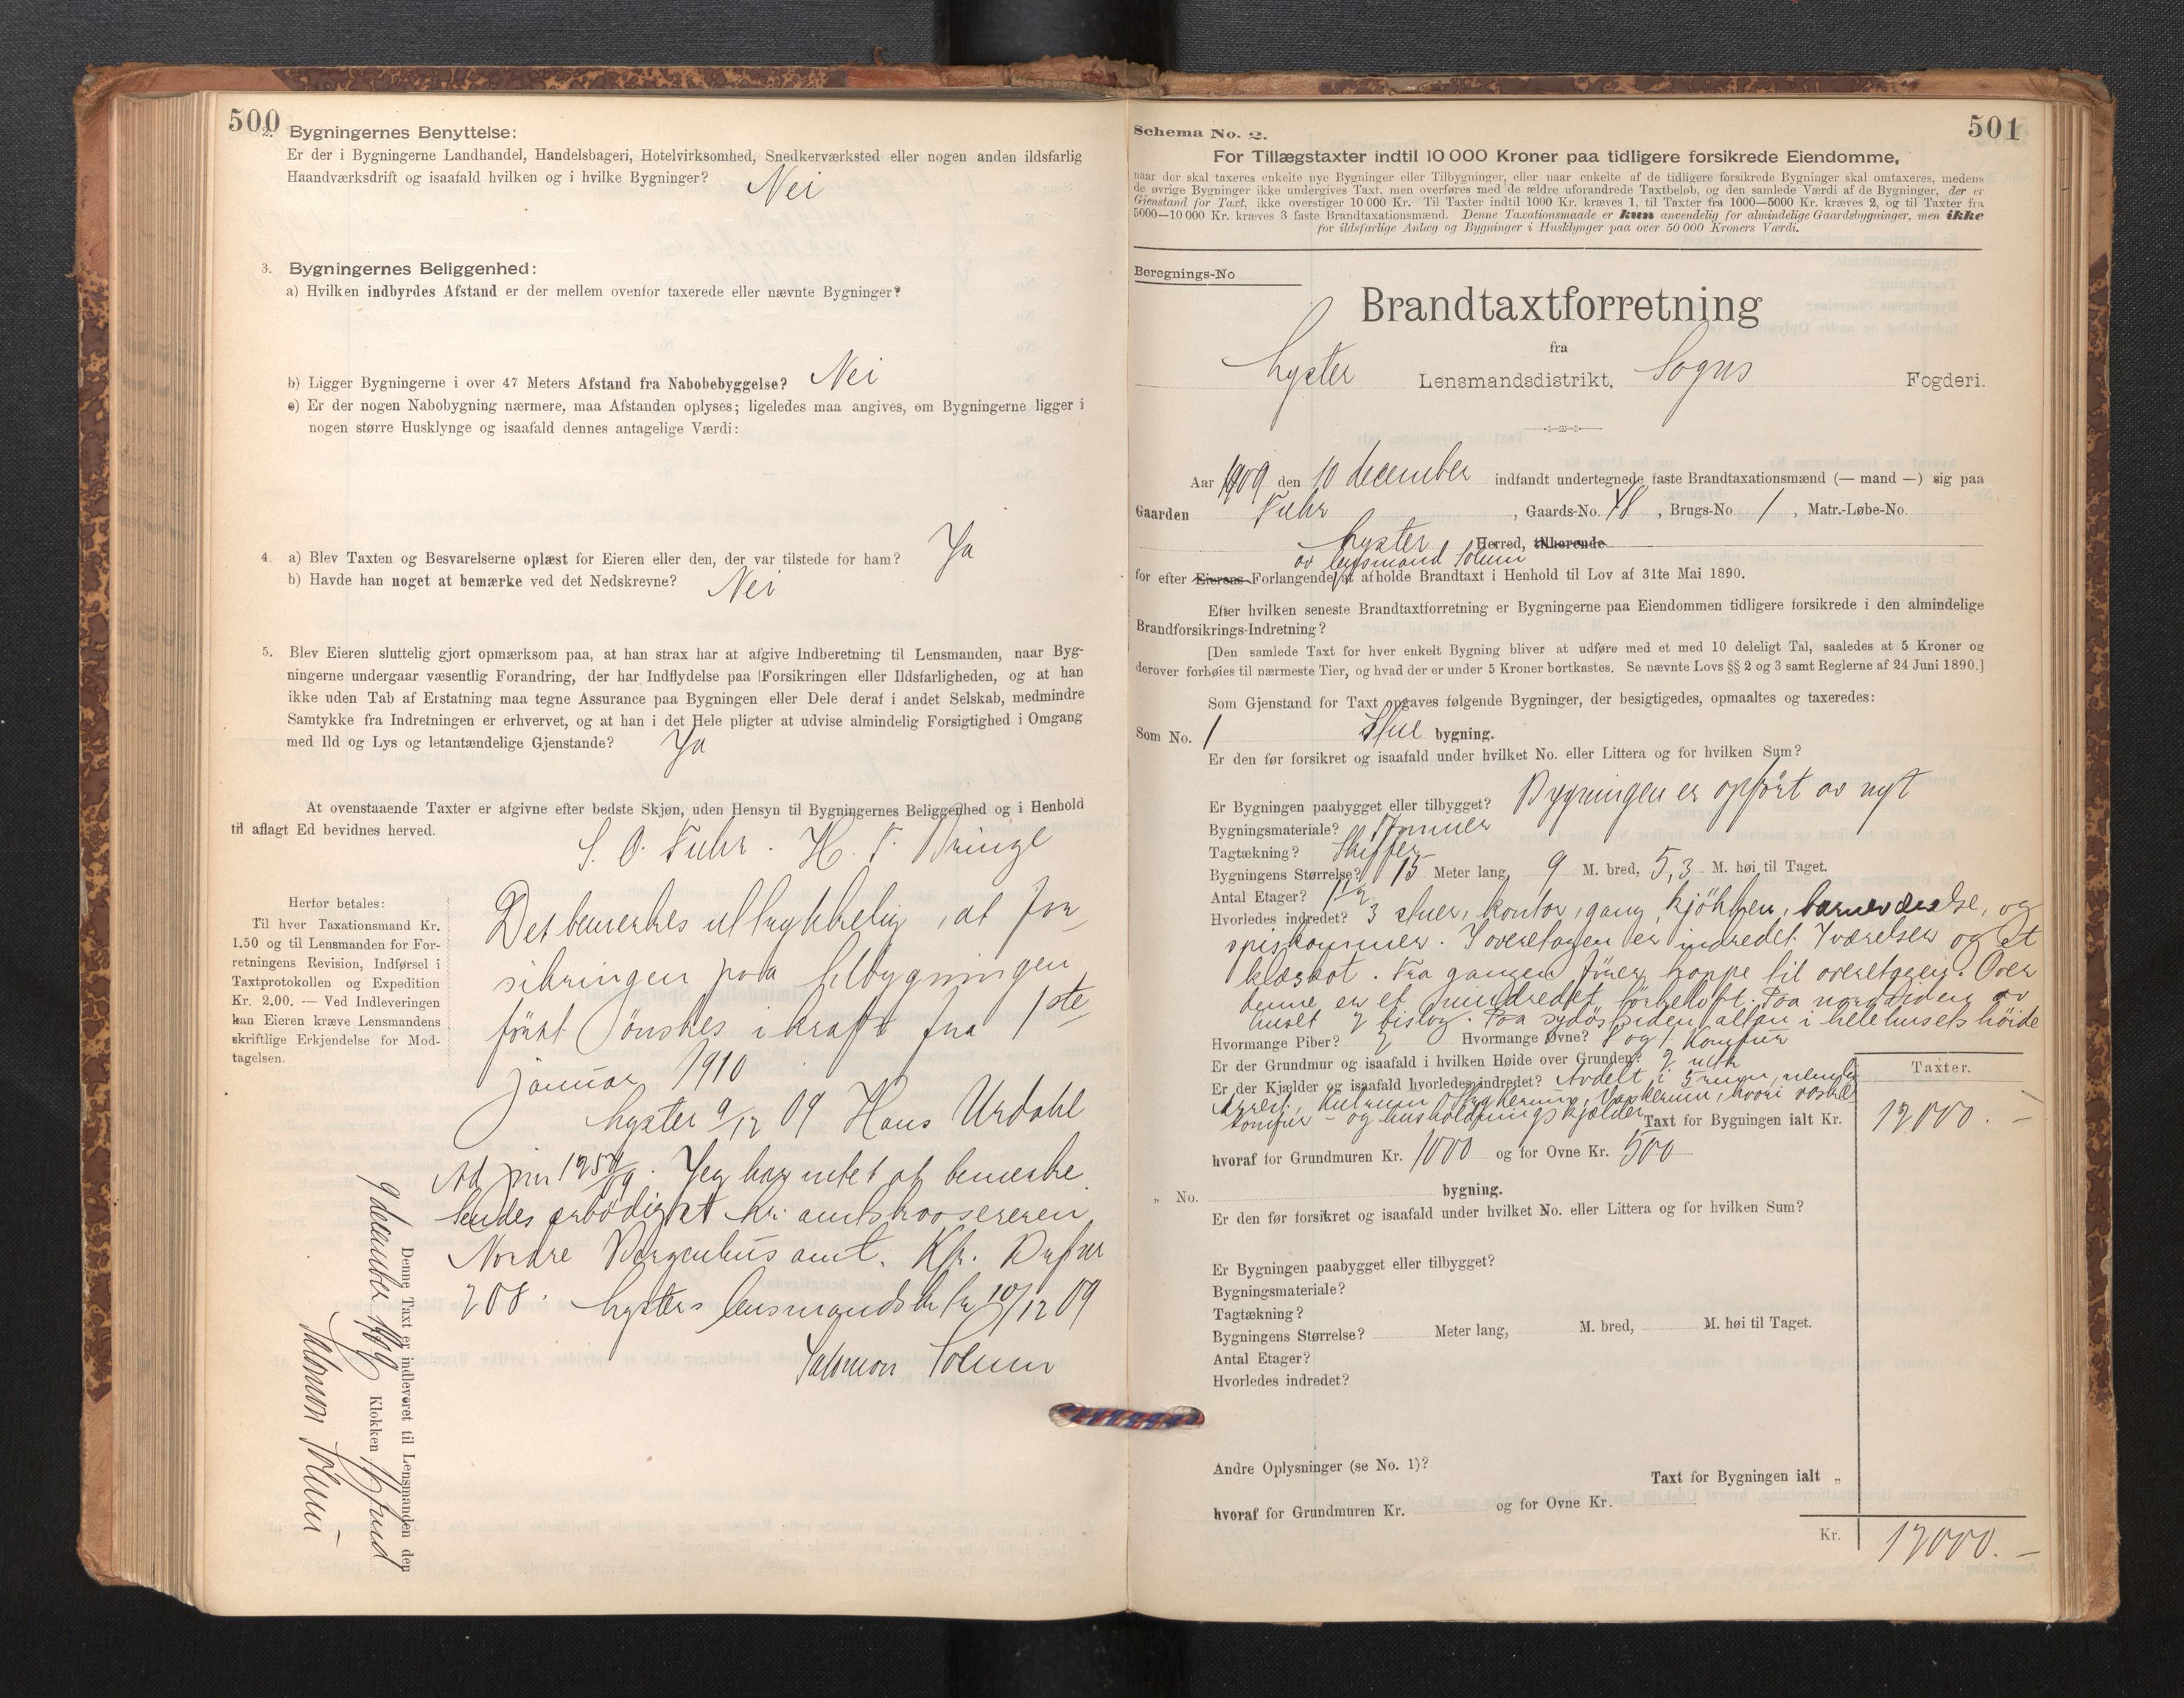 500
2. Bygningernes Benyttelse:
Er der i Bygningerne Landhandel, Handelsbageri, Hotelvirksomhed, Snedkerværksted eller nogen anden ildsfarlig
Haandværksdrift og isaafald hvilken og i hvilke Bygninger? Nei
3. Bygningernes Beliggenhed:
a) Hvilken indbyrdes Afstand er der mellem ovenfor taxerede eller nævnte Bygninger?
b) Ligger Bygningerne i over 47 Meters Afstand fra Nabobebyggelse? Nei
c) Er der nogen Nabobygning nærmere, maa Afstanden oplyses; ligeledes maa angives, om Bygningerne ligger i
nogen større Husklynge og isaafald dennes antagelige Værdi:
4. a) Blev Taxten og Besvarelserne oplæst for Eieren eller den, der var tilstede for ham? Ja
b) Havde han noget at bemærke ved det Nedskrevne? Nei
5. Blev Eieren sluttelig gjort opmærksom paa, at han strax har at afgive Indberetning til Lensmanden, naar Byg-
ningerne undergaar væsentlig Forandring, der har Indflydelse paa Forsikringen eller Ildsfarligheden, og at han
ikke uden Tab af Erstatning maa tegne Assurance paa Bygningen eller Dele deraf i andet Selskab, medmindre
Samtykke fra Indretningen er erhvervet, og at han i det Hele pligter at udvise almindelig Forsigtighed i Omgang
med Ild og Lys og letantændelige Gjenstande? Ja
At ovenstaaende Taxter er afgivne efter bedste Skjøn, uden Hensyn til Bygningernes Beliggenhed og i Henhold
til aflagt Ed bevidnes herved.
S. O. Fuhr. H. T. Bringe
Herfor betales:
Til hver Taxationsmand Kr.
1.50 og til Lensmanden for For-
retningens Revision, Indførsel i
Taxtprotokollen og Expedition
Kr. 2.00. — Ved Indleveringen
kan Eieren kræve Lensmandens
skriftlige Erkjendelse for Mod-
tagelsen.
Det bemerkes uttrykkelig, at for-
sikringen paa tilbygningen
først ønskes i kraft fra 1ste
januar 1910
Lyster 9/12 09 Hans Urdahl
Ad jnr 1250/09. Jeg har intet at bemerke.
Sendes ærbødigst hr. amtskassereren
Nordre Bergenhus amt. Kfr. Ds jnr
208. Lysters lensmandsk. 10/12 09
Salomon Solum
Denne Taxt er indleveret til Lensmanden den
9 december 1909 Klokken
Salomon Solum
501
Schema No. 2.
For Tillægstaxter indtil 10 000 Kroner paa tidligere forsikrede Eiendomme,
naar der skal taxeres enkelte nye Bygninger eller Tilbygninger, eller naar enkelte af de tidligere forsikrede Bygninger skal omtaxeres, medens
de øvrige Bygninger ikke undergives Taxt, men overføres med de ældre uforandrede Taxtbeløb, og den samlede Værdi af de Bygninger, der er
Gjenstand for Taxt, ikke overstiger 10 000 Kr. Til Taxter indtil 1000 Kr. kræves 1, til Taxter fra 1000—5000 Kr. kræves 2, og til Taxter fra
5000—10 000 Kr. kræves 3 faste Brandtaxationsmænd. Denne Taxationsmaade er kun anvendelig for almindelige Gaardsbygninger, men ikke
for ildsfarlige Anlæg og Bygninger i Husklynger paa over 50 000 Kroners Værdi.
Beregnings-No
Brandtaxtforretning
fra
Lyster Lensmandsdistrikt, Sogns Fogderi.
Aar 1909 den 10 december indfandt undertegnede faste Brandtaxationsmænd (— mand —) sig paa
Gaarden Fuhr, Gaards-No. 48, Brugs-No. 1, Matr.-Løbe-No.
Lyster Herred, tilhørende
av lensmand Solum
for efter Eierens Forlangende at afholde Brandtaxt i Henhold til Lov af 31te Mai 1890.
Efter hvilken seneste Brandtaxtforretning er Bygningerne paa Eiendommen tidligere forsikrede i den almindelige
Brandforsikrings-Indretning?
[Den samlede Taxt for hver enkelt Bygning bliver at udføre med et med 10 deleligt Tal, saaledes at 5 Kroner og
derover forhøies til nærmeste Tier, og hvad der er under 5 Kroner bortkastes. Se nævnte Lovs §§ 2 og 3 samt Reglerne af 24 Juni 1890.]
Som Gjenstand for Taxt opgaves følgende Bygninger, der besigtigedes, opmaaltes og taxeredes:
Som No. 1 Stue bygning.
Er den før forsikret og isaafald under hvilket No. eller Littera og for hvilken Sum?
Er Bygningen paabygget eller tilbygget? Bygningen er opført av nyt
Bygningsmateriale? Tømmer
Tagtækning? Skiffer
Bygningens Størrelse? 15 Meter lang, 9 M. bred, 5,3 M. høi til Taget.
Antal Etager? 1 1/2
Hvorledes indredet? 3 stuer, kontor, gang, kjøkken, barneværelse, og
spiskammer. I overetagen er indredet 7 værelser og et
klæskot. Fra gangen fører trappe til overetagen. Over
denne er et uindredet tørkeloft. Paa nordsiden av
huset 2 bislag. Paa sydøstsiden altan i hele husets høide
Hvormange Piber? 2 Hvormange Ovne? 8 og 1 komfur
Er der Grundmur og isaafald i hvilken Høide over Grunden? 2 mtr
Er der Kjælder og isaafald hvorledes indredet? Avdelt i 5 rum, nemlig
Arrest, kulrum, Strykerum, Vaskerum, hvori vaske-
komfur - og husholdningskjælder
Taxter.
Taxt for Bygningen ialt Kr. 12000.-
hvoraf for Grundmuren Kr. 1000 og for Ovne Kr. 500
„ No. bygning.
Er den før forsikret og isaafald under hvilket No. eller Littera og for hvilken Sum?
Er Bygningen paabygget eller tilbygget?
Bygningsmateriale?
Tagtækning?
Bygningens Størrelse? Meter lang, M. bred, M. høi til Taget.
Antal Etager?
Hvorledes indredet?
Andre Oplysninger (se No. 1)?
Taxt for Bygningen ialt „
hvoraf for Grundmuren Kr. og for Ovne Kr.
Kr. 12000.-